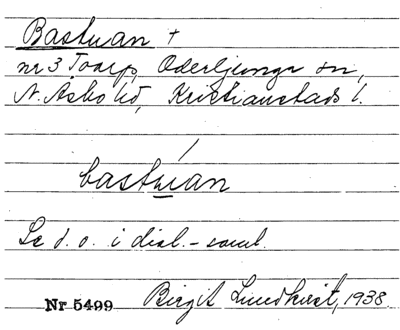 Bastuan +
nr 3 Toarp, Oderljunga sn,
N. Åsbo hd, Kristianstads l.
bastuan
Se d. o. i dial.-saml.
Nr 5499 Birgit Lindkvist, 1938